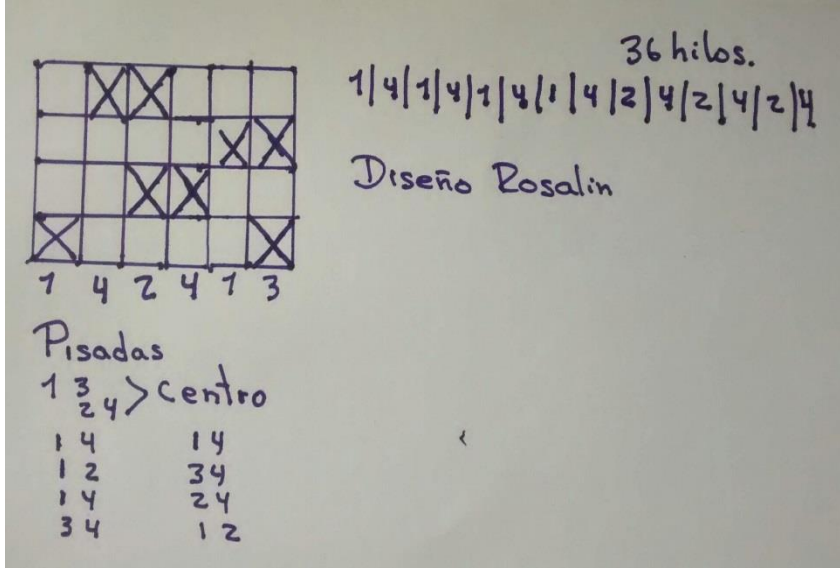 36 hilos.
1|4|1|4|1|4|1|4|2|4|2|4|2|4
Diseño Rosalin
1 4 2 4 1 3
Pisadas
1 3
2 4 > Centro
1 4 1 4
1 2 3 4
1 4 2 4
3 4 1 2